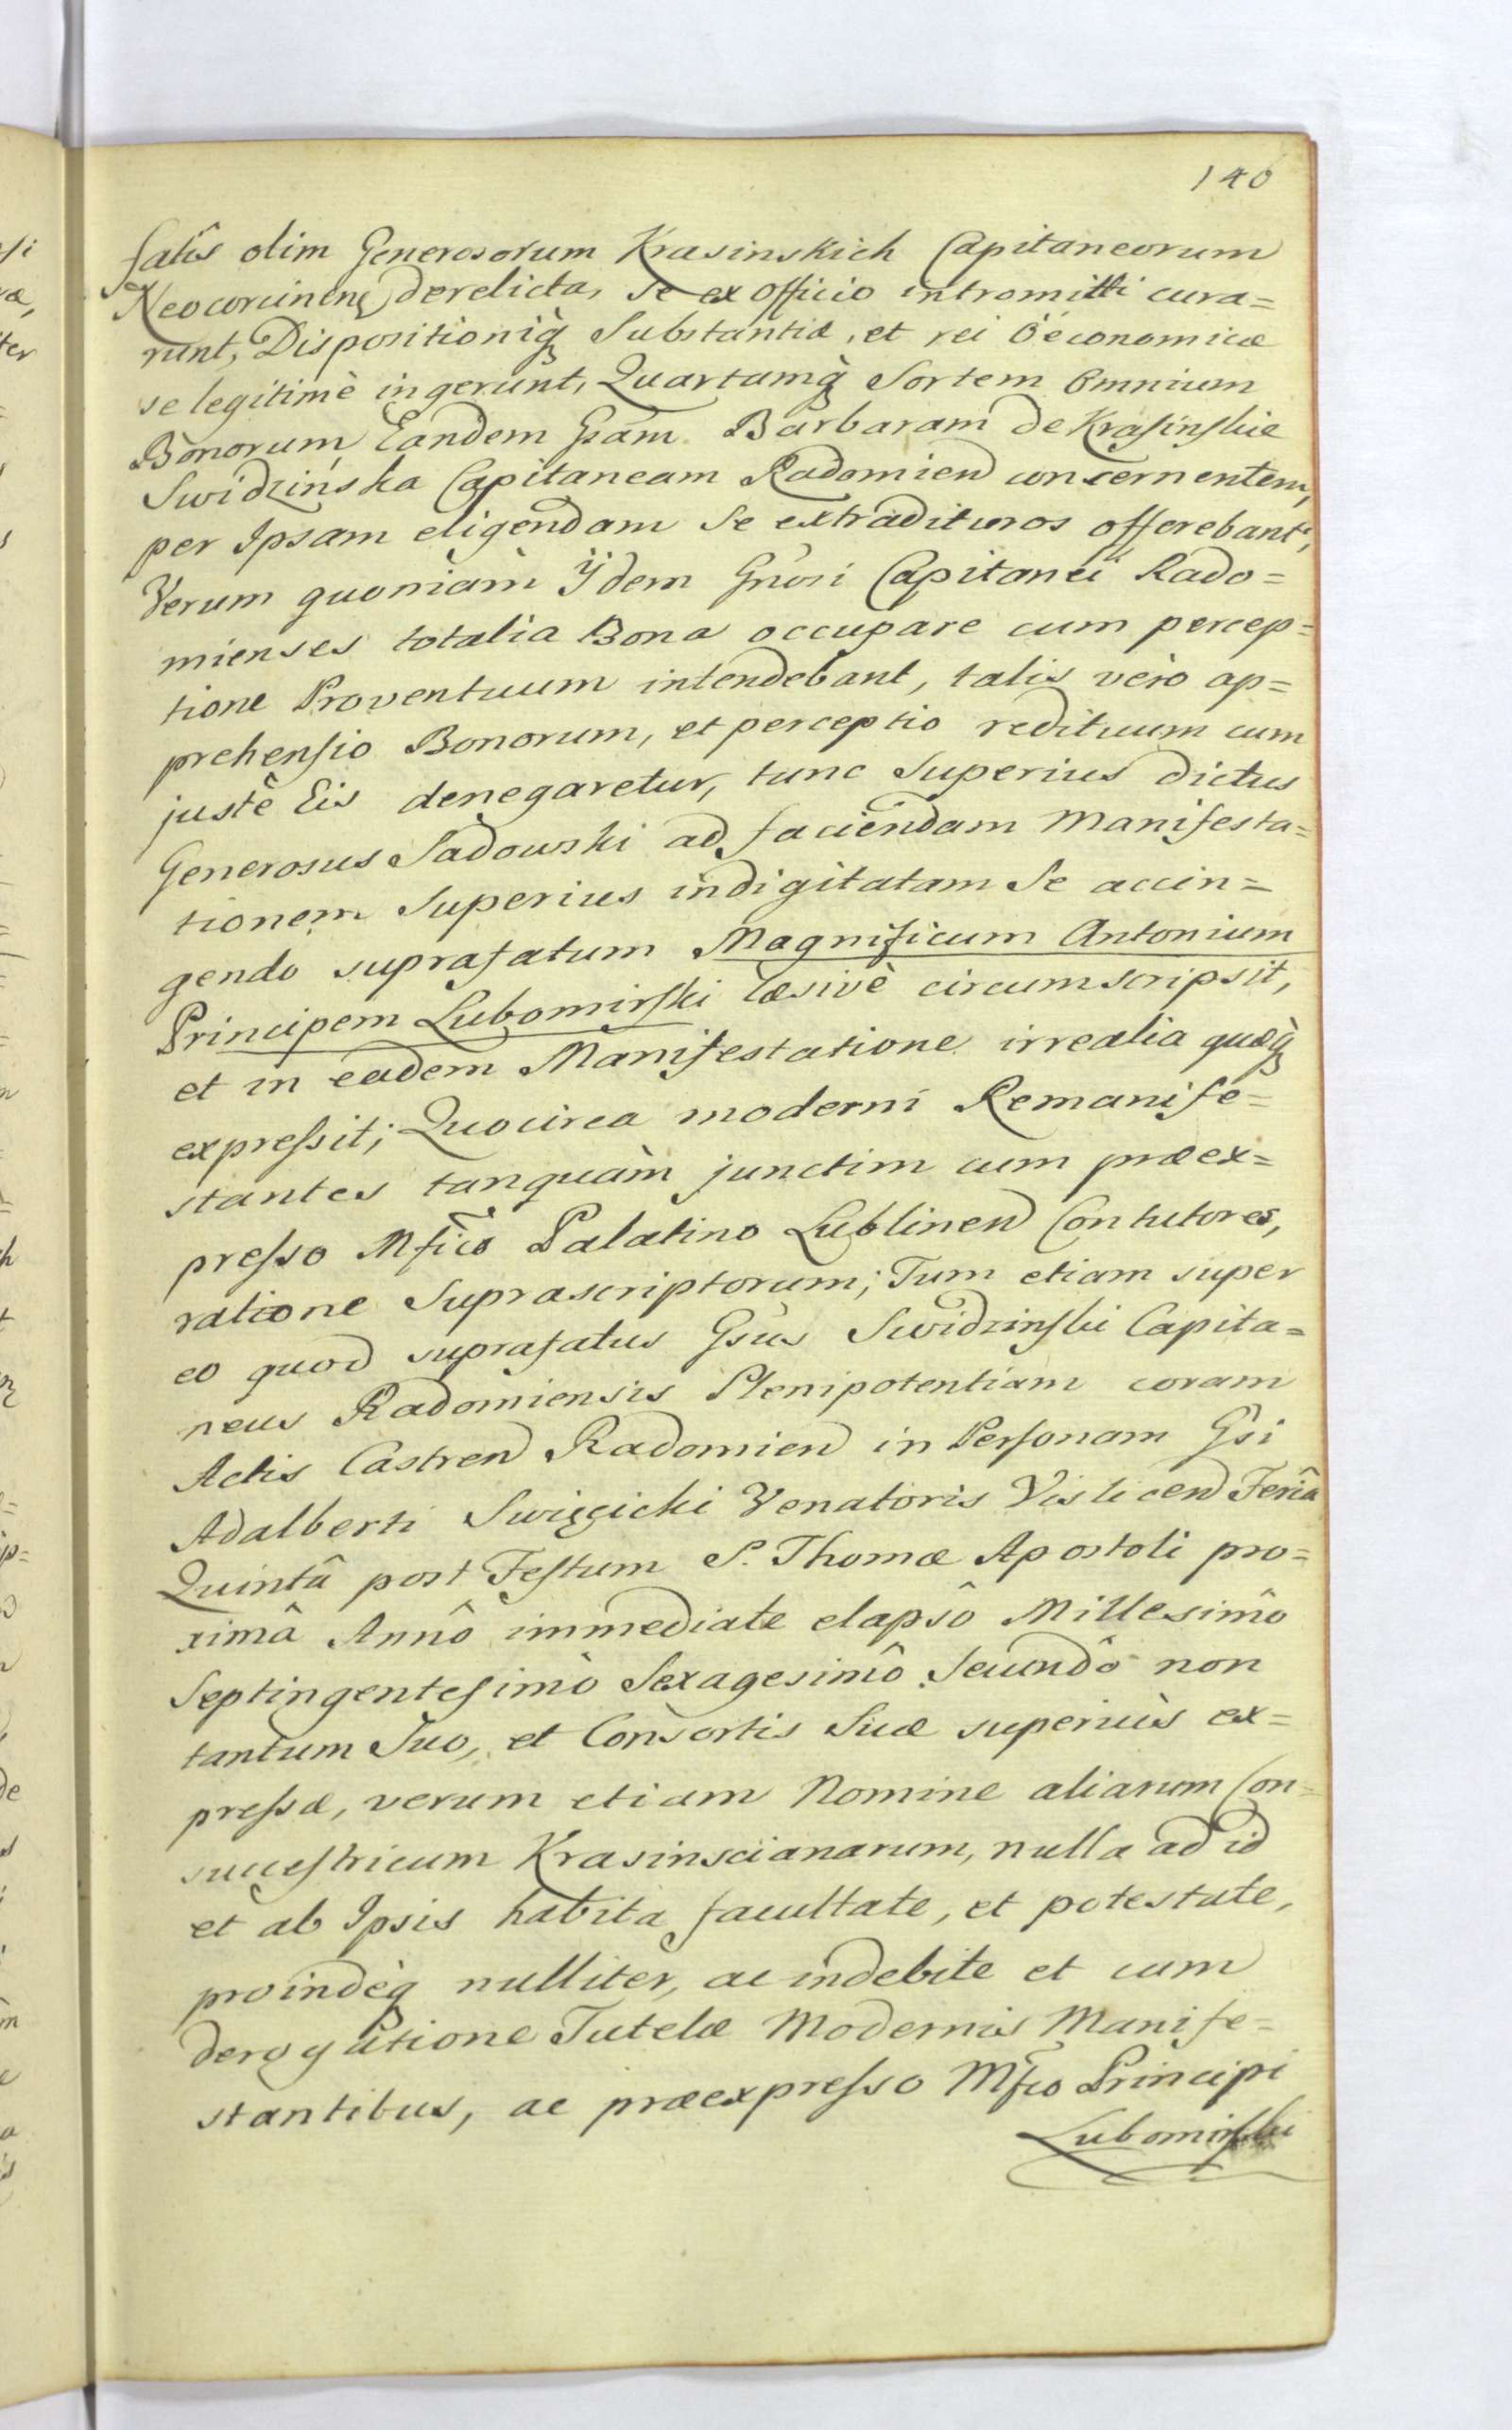 140
fatis olim Generosorum Krasinskich Capitaneorum
Neocorcinen derelicta, se ex officio intromitti cura=
runt, Dispositioniq̀ Substantiæ, et rei Oeconomicæ
se legitimè ingerunt, Quartamq̀ Sortem Omnium
Bonorum, Eandem Gsam Barbaram de Krasinskie
Swidzińska Capitaneam Radomien concernentem,
per Ipsam eligendam se extradituros offerebant,
Verum quoniàm Ijdem Gnosi Capitanei Rado=
mienses totalia Bona occupare cum percep=
tione Proventuum intendebant, talis vèro ap=
prehensio Bonorum, et perceptio redituum cum
justè Eis denegaretur, tunc Superius dictus
Generosus Sadowski ad faciendam Manifesta=
tionem Superius indigitatam Se accin=
gendo suprafatum Magnificum Antonium
Principem Lubomirski læsivè circumscripsit,
et in eadem Manifestatione irrealia quæq̀
expressit; Quocirca moderni Remanife=
stantes tanquàm junctim cum præex=
presso Mfico Palatino Lublinen Contutores,
ratione Suprascriptorum; Tum etiam super
eo quod suprafatus Gsus Swidzinski Capita=
neus Radomiensis Plenipotentiam coram
Actis Castren Radomien in Personam Gsi
Adalberti Swięcicki Venatoris Vislicen Feriâ
Quintâ post Festum S. Thomæ Apostoli pro=
ximâ Annô immediate elapsô Millesimô
Septingentesimô Sexagesimô Secundô non
tantum Suo, et Consortis Suæ superiùs ex=
pressæ, verum etiam Nomine aliarum Con=
succestricum Krasinscianarum, nulla ad id
et ab Ipsis habita facultate, et potestate,
proindèq nulliter, ac indebite et cum
derogatione Tutelæ Modernis Manife=
stantibus, ac præexpresso Mfco Principi
Lubomirski